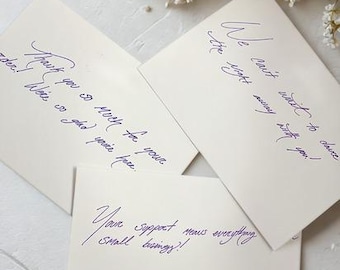 Thank you so much for your
order! We're so glad you're here.
We can't wait to dance
the night away with you!
Your support means everything
small business!!